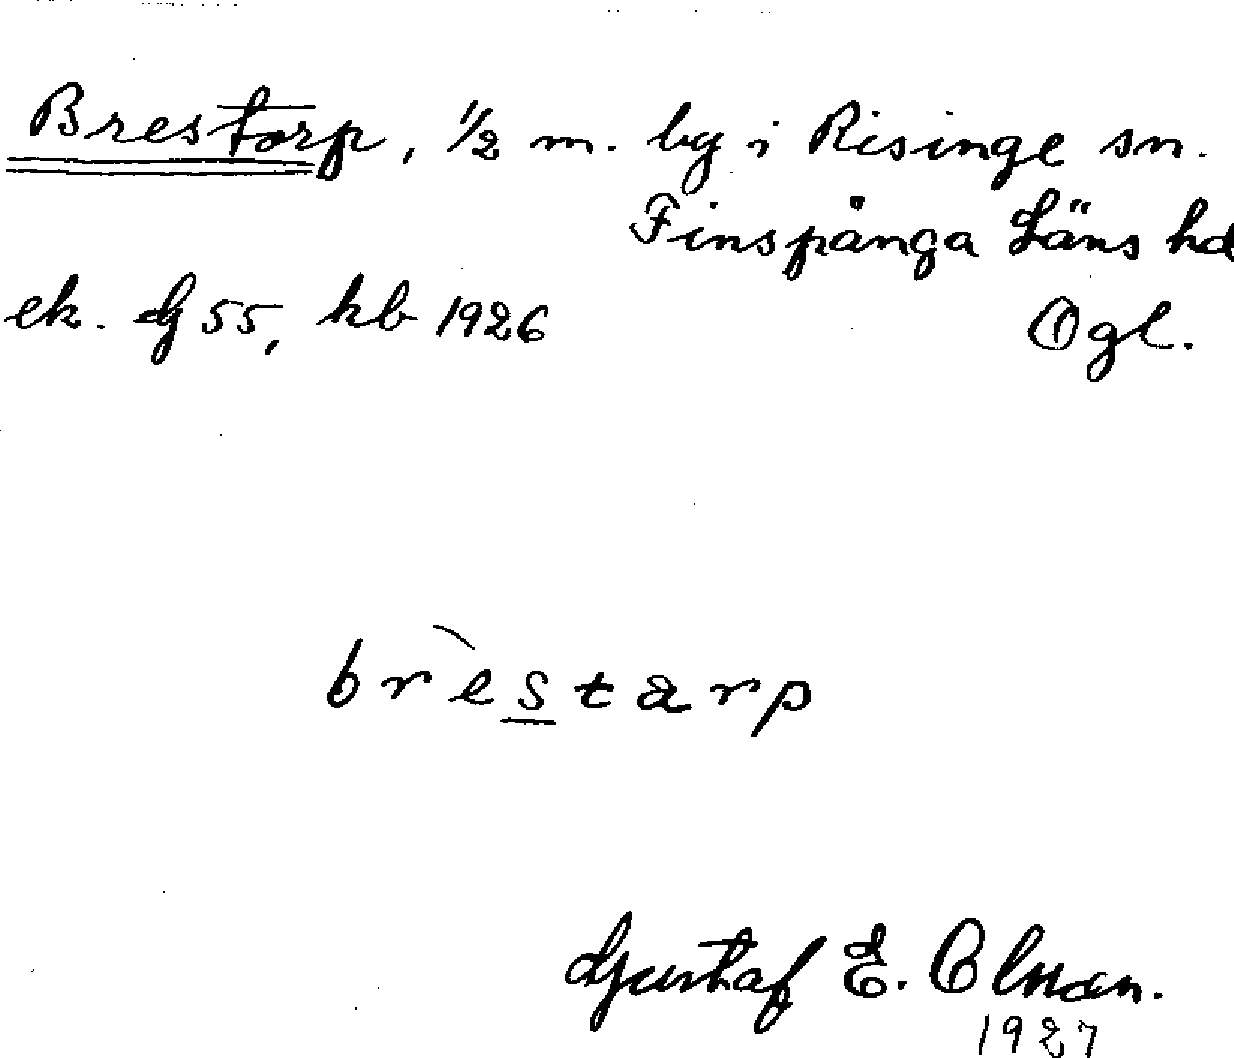 Brestorp, 1/2 m. by i Risinge sn.
Finspånga Läns hd
ek. G 55, kb 1926 Ögl.
brèstarp
Gustaf E. Olman.
1927